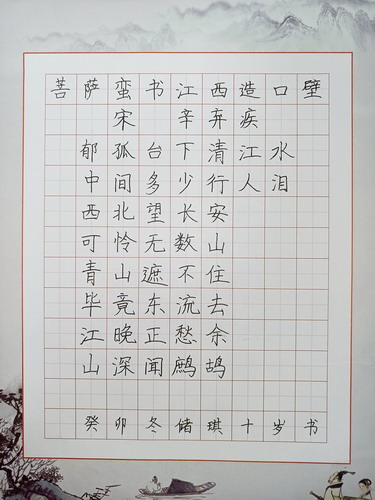 菩萨蛮书江西造口壁
宋 辛弃疾
郁孤台下清江水
中间多少行人泪
西北望长安
可怜无数山
青山遮不住
毕竟东流去
江晚正愁余
山深闻鹧鸪
癸卯冬储琪十岁书